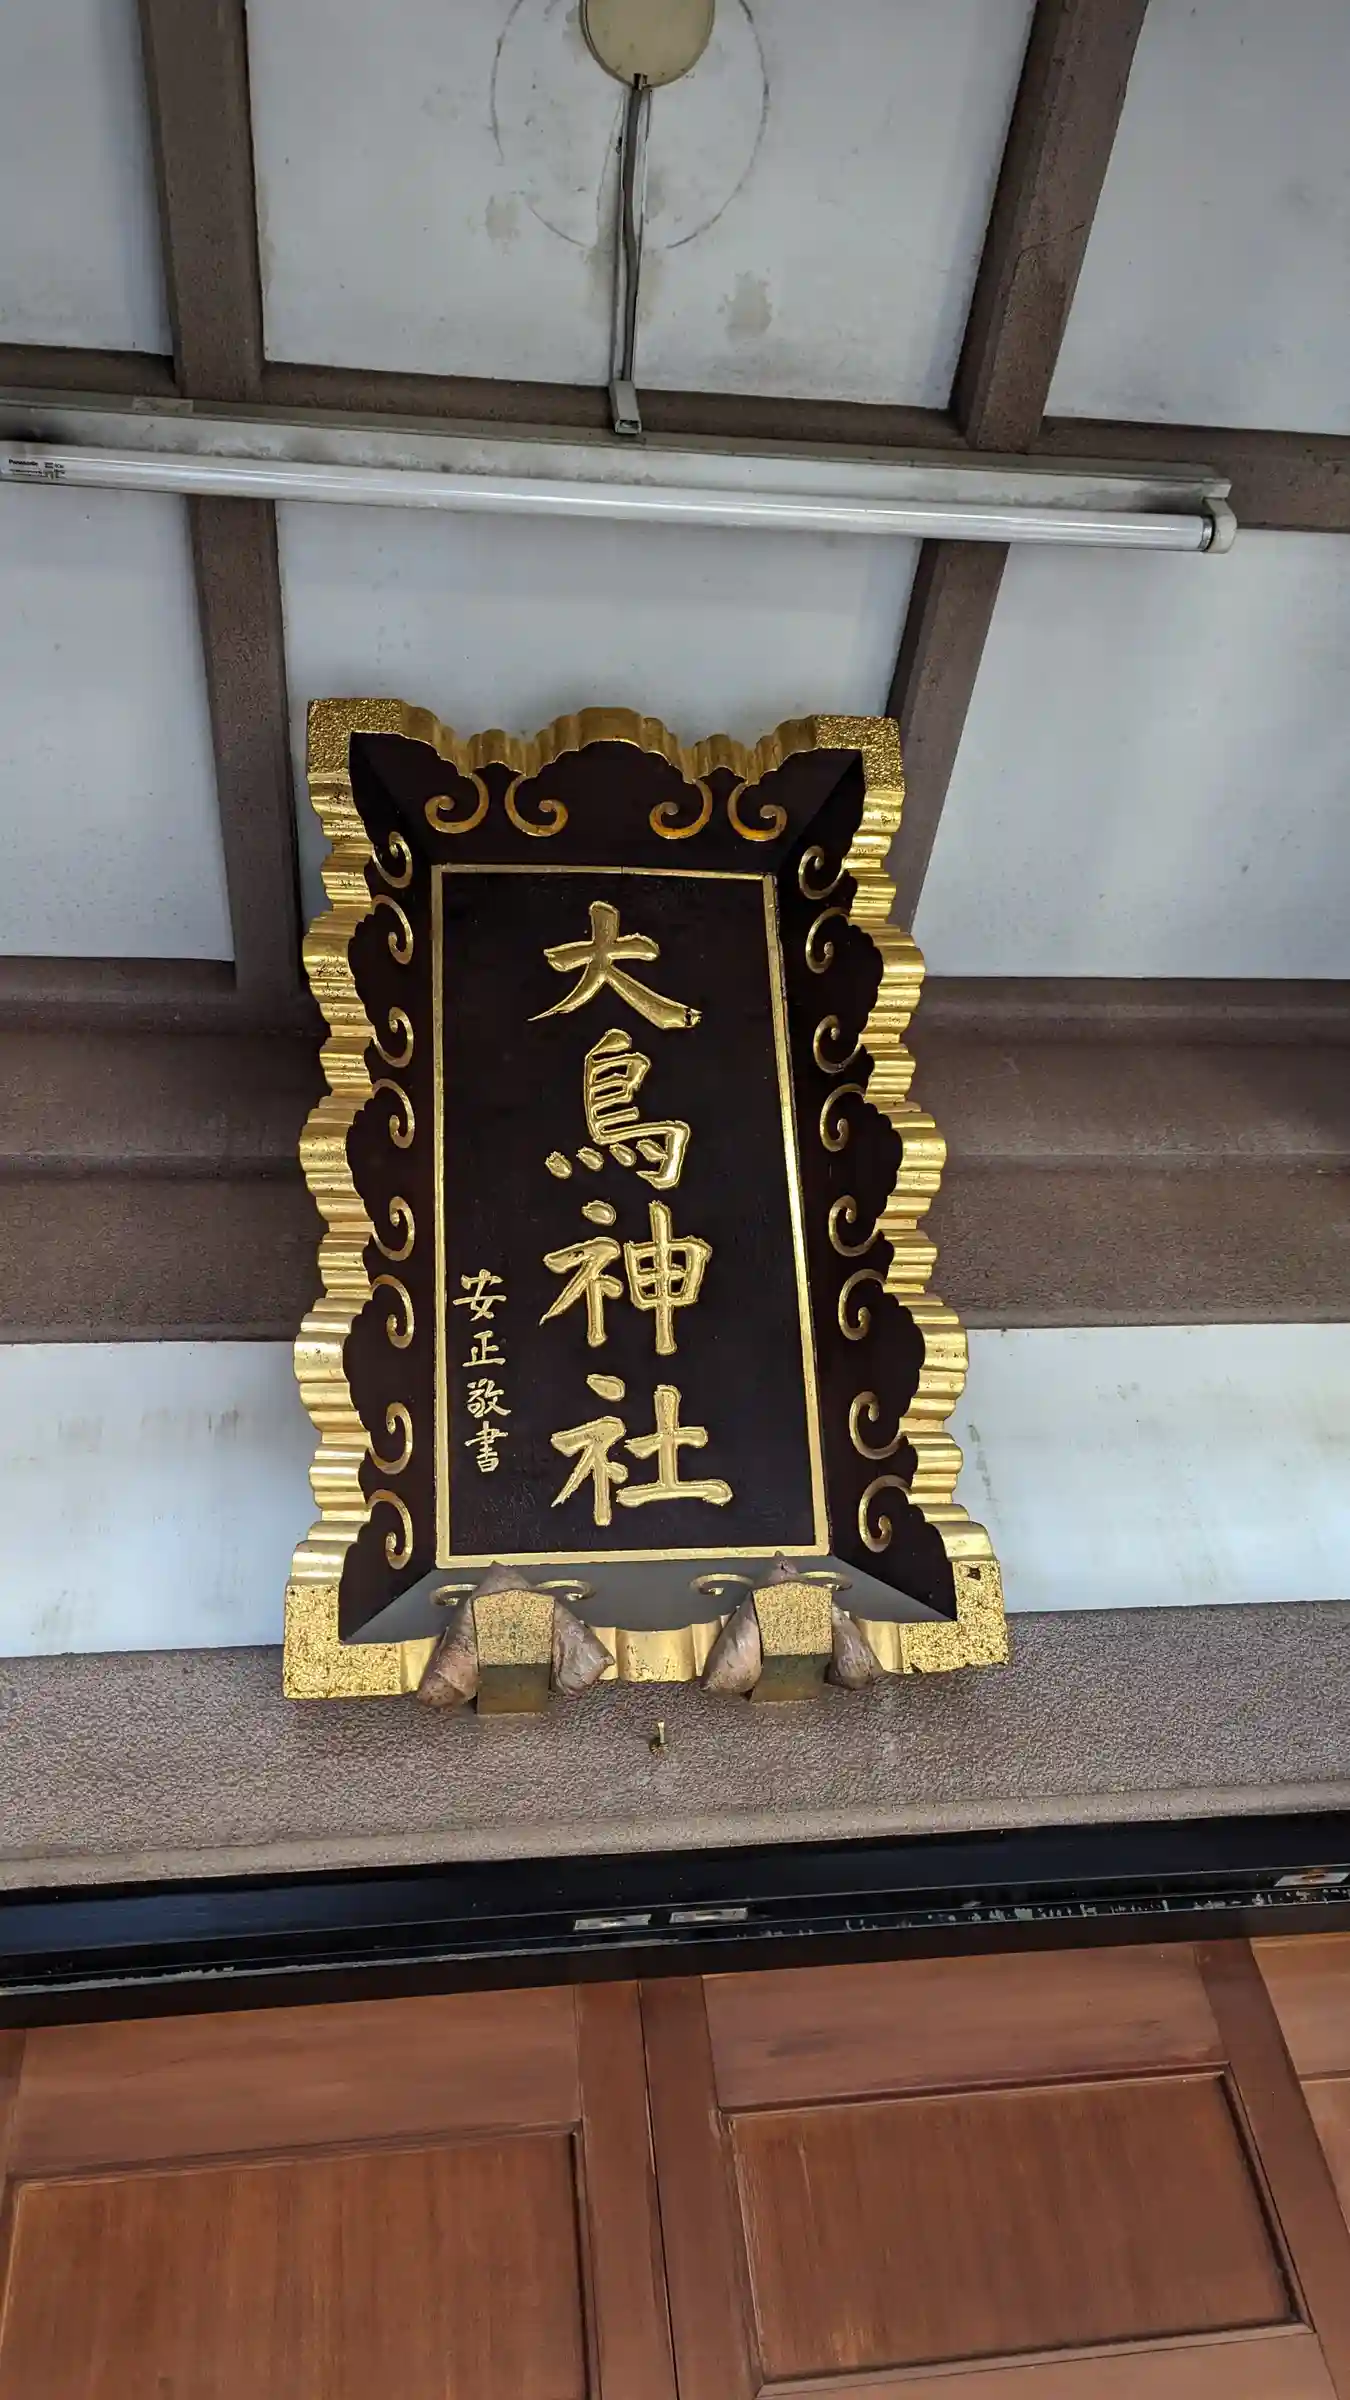 大鳥神社
安正敬書
Panasonic